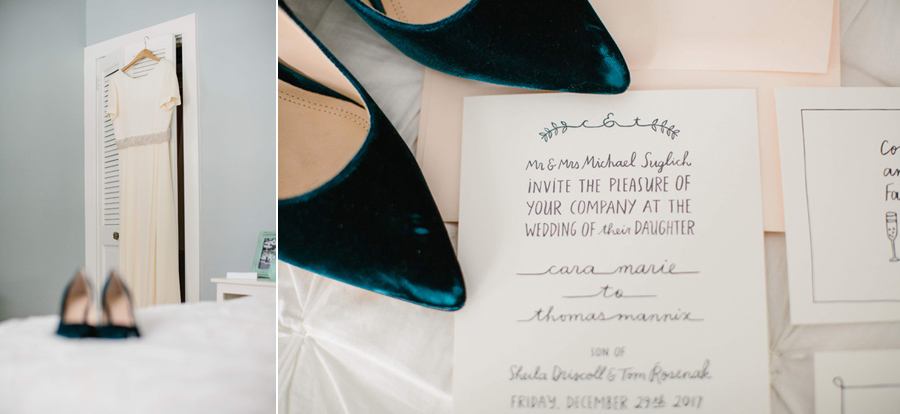 c & t
Mr & Mrs Michael Suglich
INVITE THE PLEASURE OF
YOUR COMPANY AT THE
WEDDING OF their DAUGHTER
cara marie
to
thomas mannix
SON OF
Sheila Driscoll & Tom Rosenak
FRIDAY, DECEMBER 29th 2017
Co
an
Fa